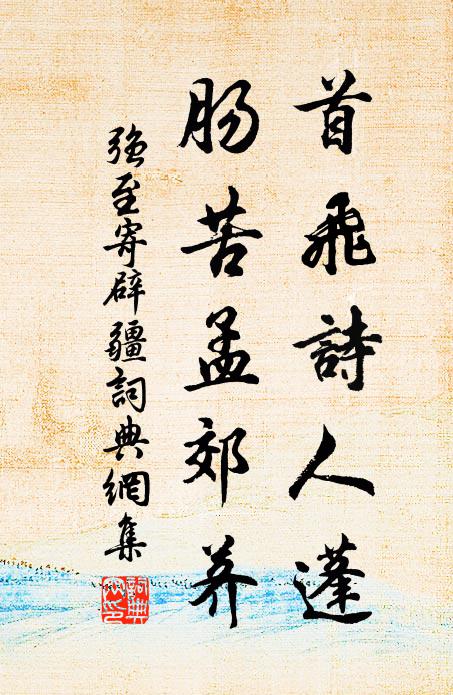 首飛詩人蓬
肠苦孟郊荠
强至寄辟疆詞典網集